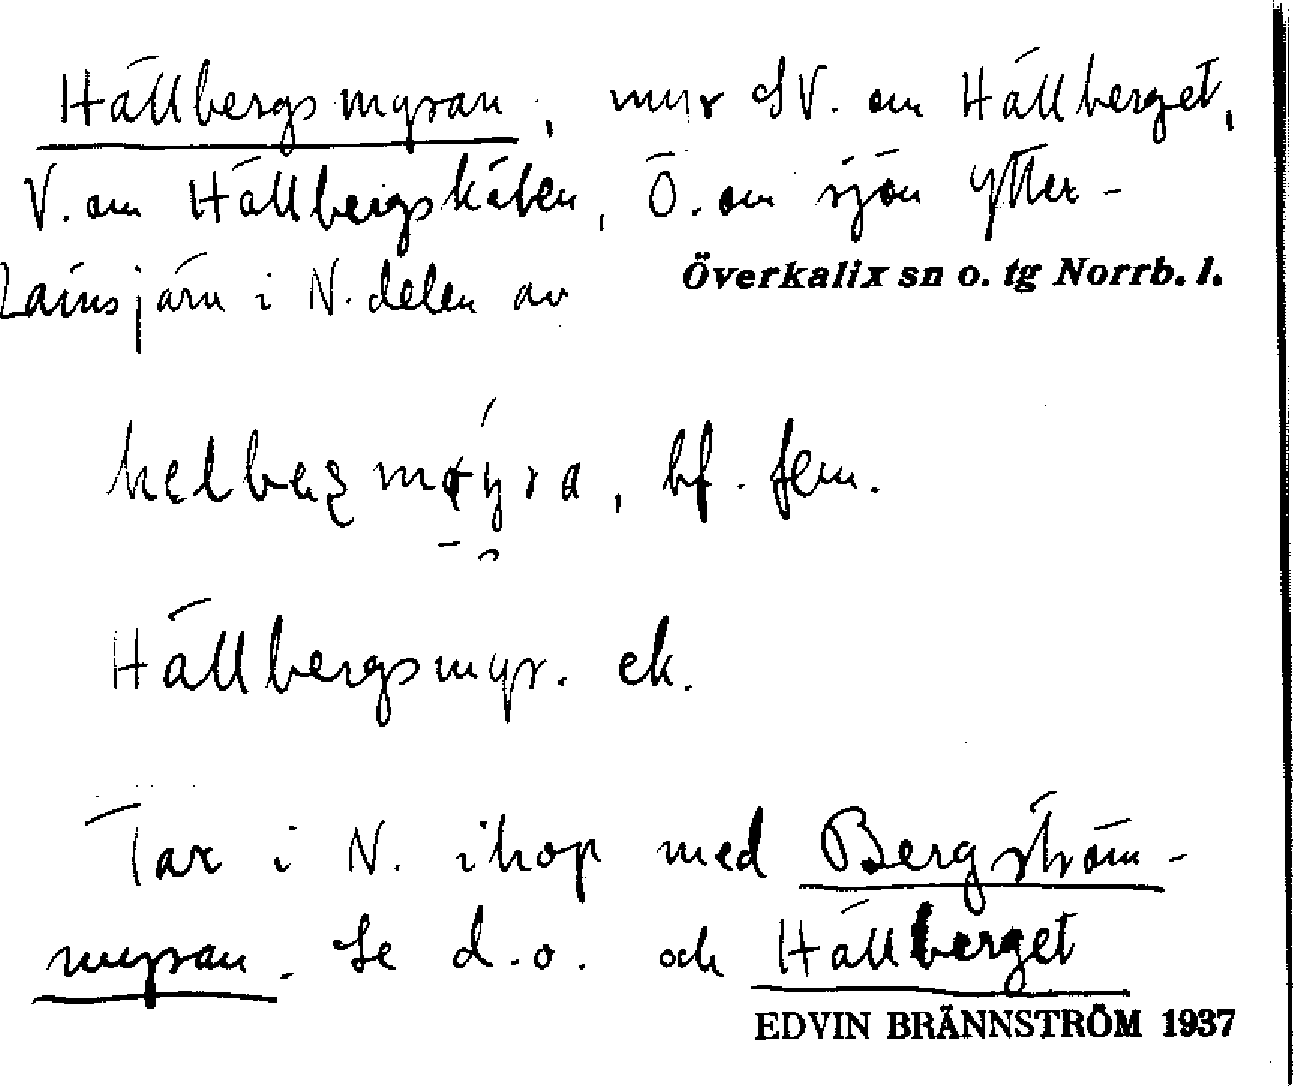 Hällbergsmyran, myr SV. om Hällberget,
V. om Hällbergskölen, Ö. om sjön Ytter-
Lainsjärn i N. delen av Överkalix sn o. tg Norrb. l.
bf. fem.
Hällbergsmyr. ek.
Tar i N. ihop med Bergström-
myran. Se d. o. och Hällberget
EDVIN BRÄNNSTRÖM 1937